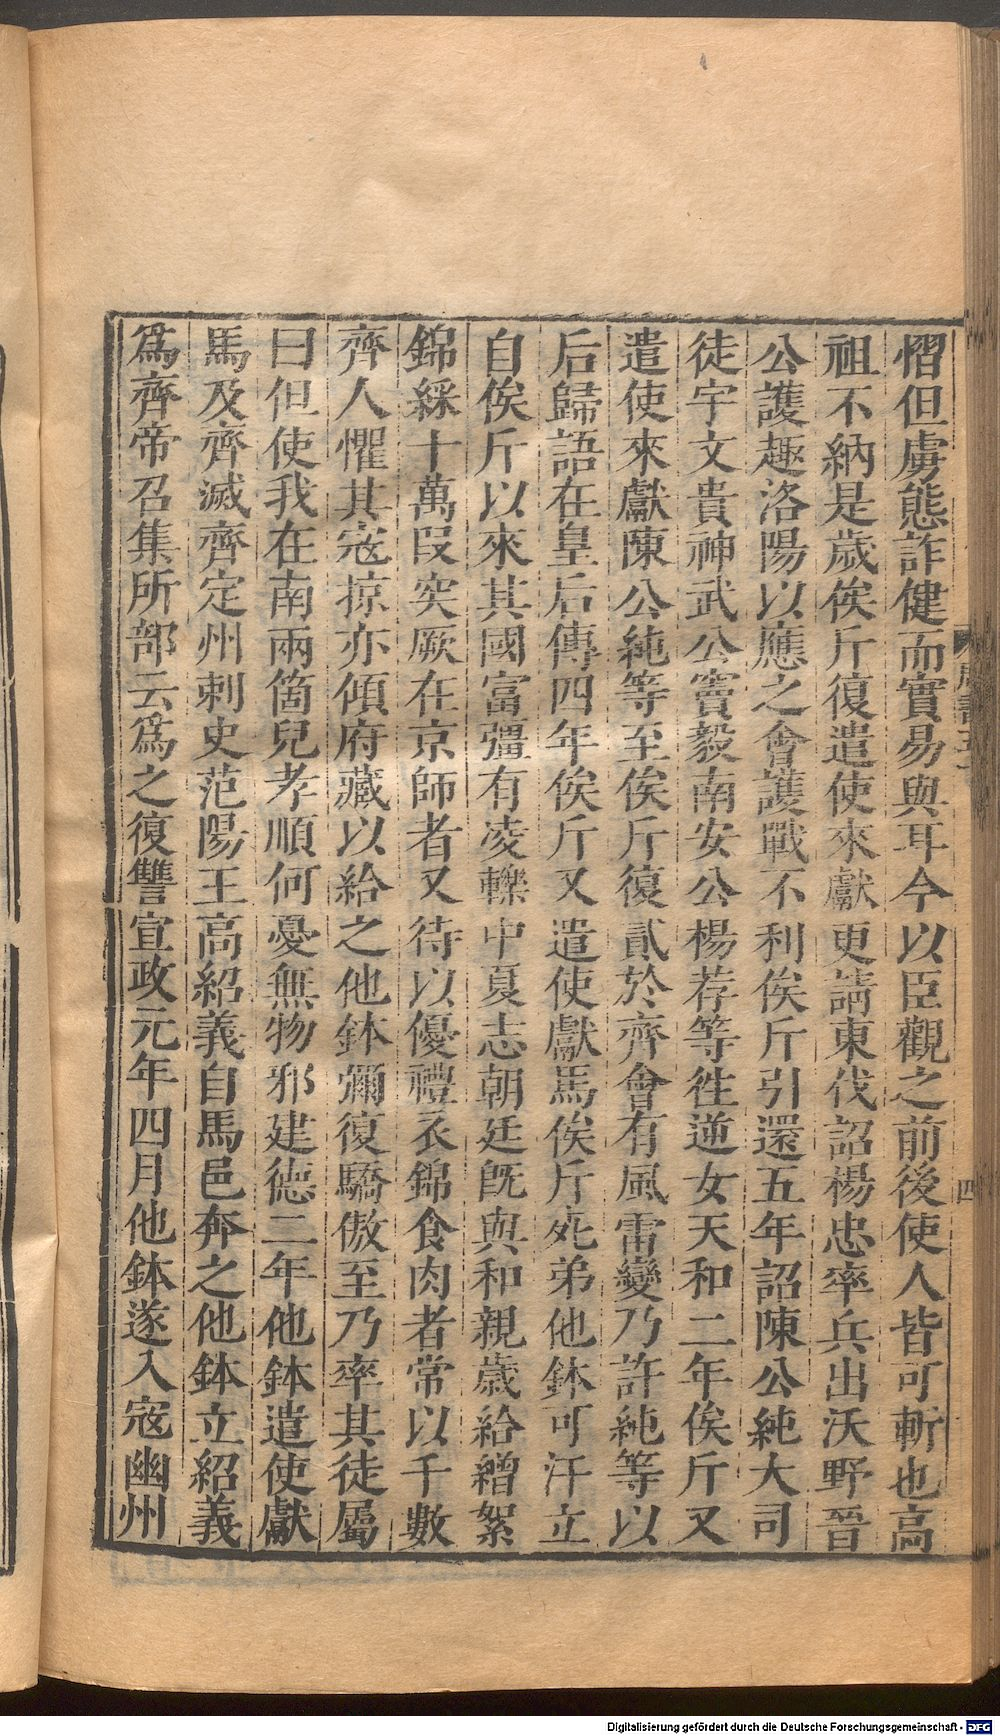 慴但虜態詐健而實易與耳今以臣觀之前後使人皆可斬也高
祖不納是歲俟斤復遣使來獻更請東伐詔楊忠率兵出沃野晉
公護趣洛陽以應之會護戰不利俟斤引還五年詔陳公純大司
徒宇文貴神武公竇毅南安公楊荐等徃逆女天和二年俟斤又
遣使來獻陳公純等至俟斤復貳於齊會有風雷變乃許純等以
后歸語在皇后傳四年俟斤又遣使獻馬俟斤死弟他鉢可汗立
自俟斤以來其國富彊有凌轢中夏志朝廷旣與和親歲給繒絮
錦綵十萬段突厥在京師者又待以優禮衣錦食肉者常以千數
齊人懼其寇掠亦傾府藏以給之他鉢彌復驕傲至乃率其徒屬
曰但使我在南兩箇兒孝順何憂無物邪建德二年他鉢遣使獻
馬及齊滅齊定州刺史范陽王高紹義自馬邑奔之他鉢立紹義
爲齊帝召集所部云爲之復讐宣政元年四月他鉢遂入寇幽州
四
Digitalisierung gefördert durch die Deutsche Forschungsgemeinschaft - DFG